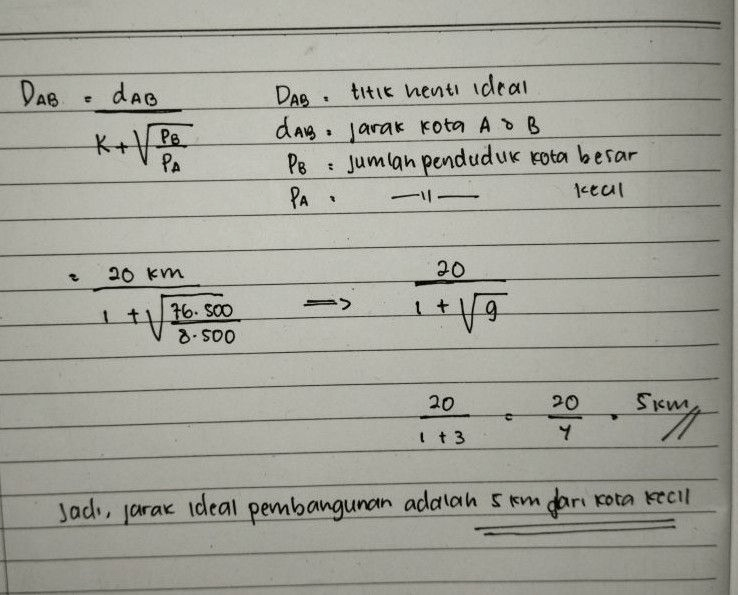 D_AB = d_AB / (K + √(P_B / P_A))
D_AB = titik henti ideal
d_AB = jarak kota A & B
P_B = Jumlah penduduk kota besar
P_A = —〃— kecil
= 20 km / (1 + √(76.500 / 8.500)) => 20 / (1 + √9)
20 / (1 + 3) = 20 / 4 = 5 km //
Jadi, jarak ideal pembangunan adalah 5 km dari kota kecil